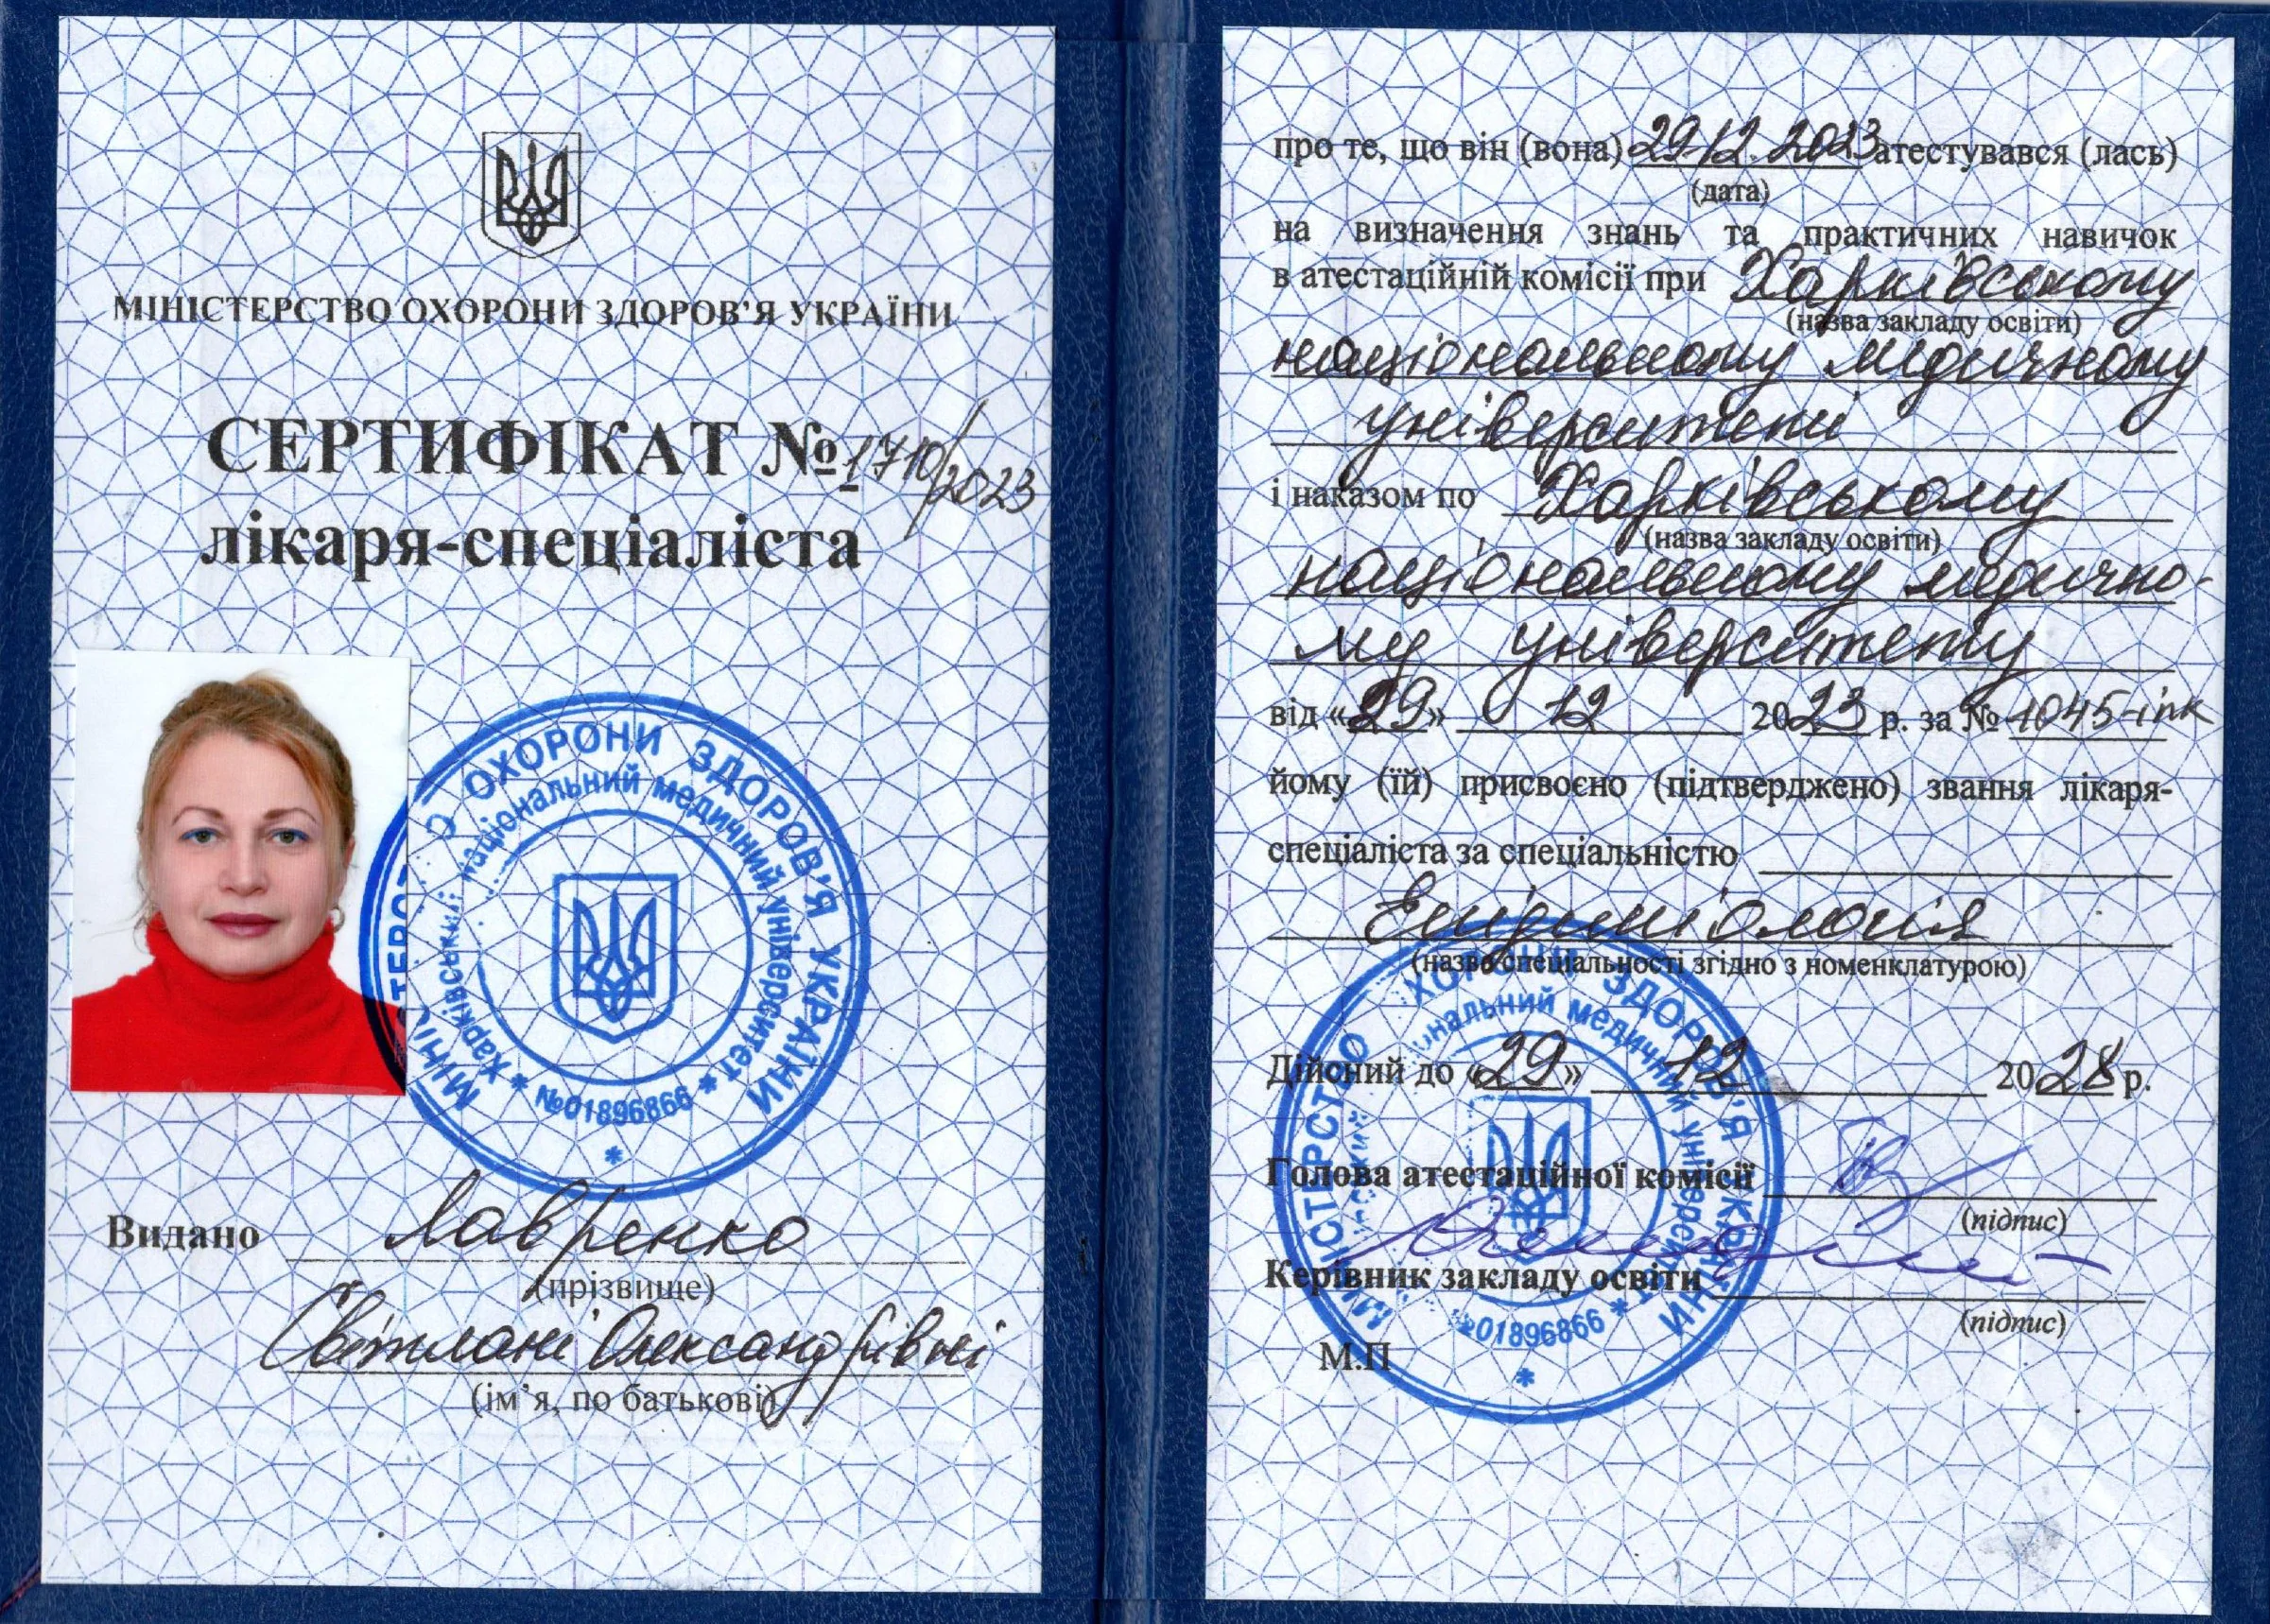 МІНІСТЕРСТВО ОХОРОНИ ЗДОРОВ'Я УКРАЇНИ
СЕРТИФІКАТ № 1710/2023
лікаря-спеціаліста
МІНІСТЕРСТВО ОХОРОНИ ЗДОРОВ'Я УКРАЇНИ
Харківський національний медичний університет
№01896866
Видано Лавренко
(прізвище)
Світлані Олександрівні
(ім'я, по батькові)
про те, що він (вона) 29.12.2023 атестувався (лась)
(дата)
на визначення знань та практичних навичок
в атестаційній комісії при Харківському
(назва закладу освіти)
національному медичному
університеті
і наказом по Харківському
(назва закладу освіти)
національному медично-
му університету
від «29» 12 2023 р. за № 1045-іпк
йому (їй) присвоєно (підтверджено) звання лікаря-
спеціаліста за спеціальністю
Епідеміологія
(назва спеціальності згідно з номенклатурою)
Дійсний до «29» 12 2028 р.
Голова атестаційної комісії
(підпис)
Керівник закладу освіти
(підпис)
М.П
МІНІСТЕРСТВО ОХОРОНИ ЗДОРОВ'Я УКРАЇНИ
медичний університет
№01896866